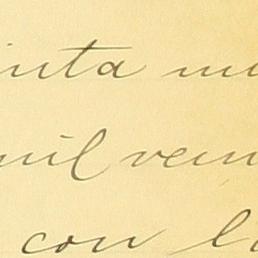 inta mi
mil vein
con la